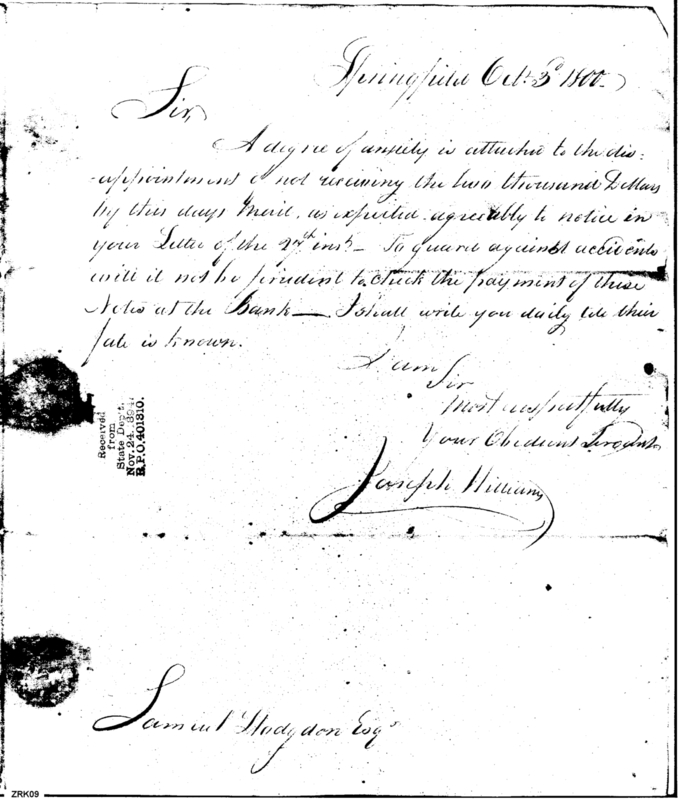 Springfield Oct. 3d 1800.
Sir,
A degree of anxiety is attached to the dis=
=appointment of not receiving the two thousand Dollars
by this days Mail, as expected agreeably to notice in
your Letter of the 27th inst. — To guard against accidents
will it not be prudent to check the payment of these
Notes at the Bank — I shall write you daily till their
fate is known.
I am
Sir
Most respectfully
Your Obedient Servant
Joseph Williams
Received
from
State Dep't.
Nov. 24, 1894.
R.P.O. 401810.
Samuel Hodgdon Esqr
ZRK09